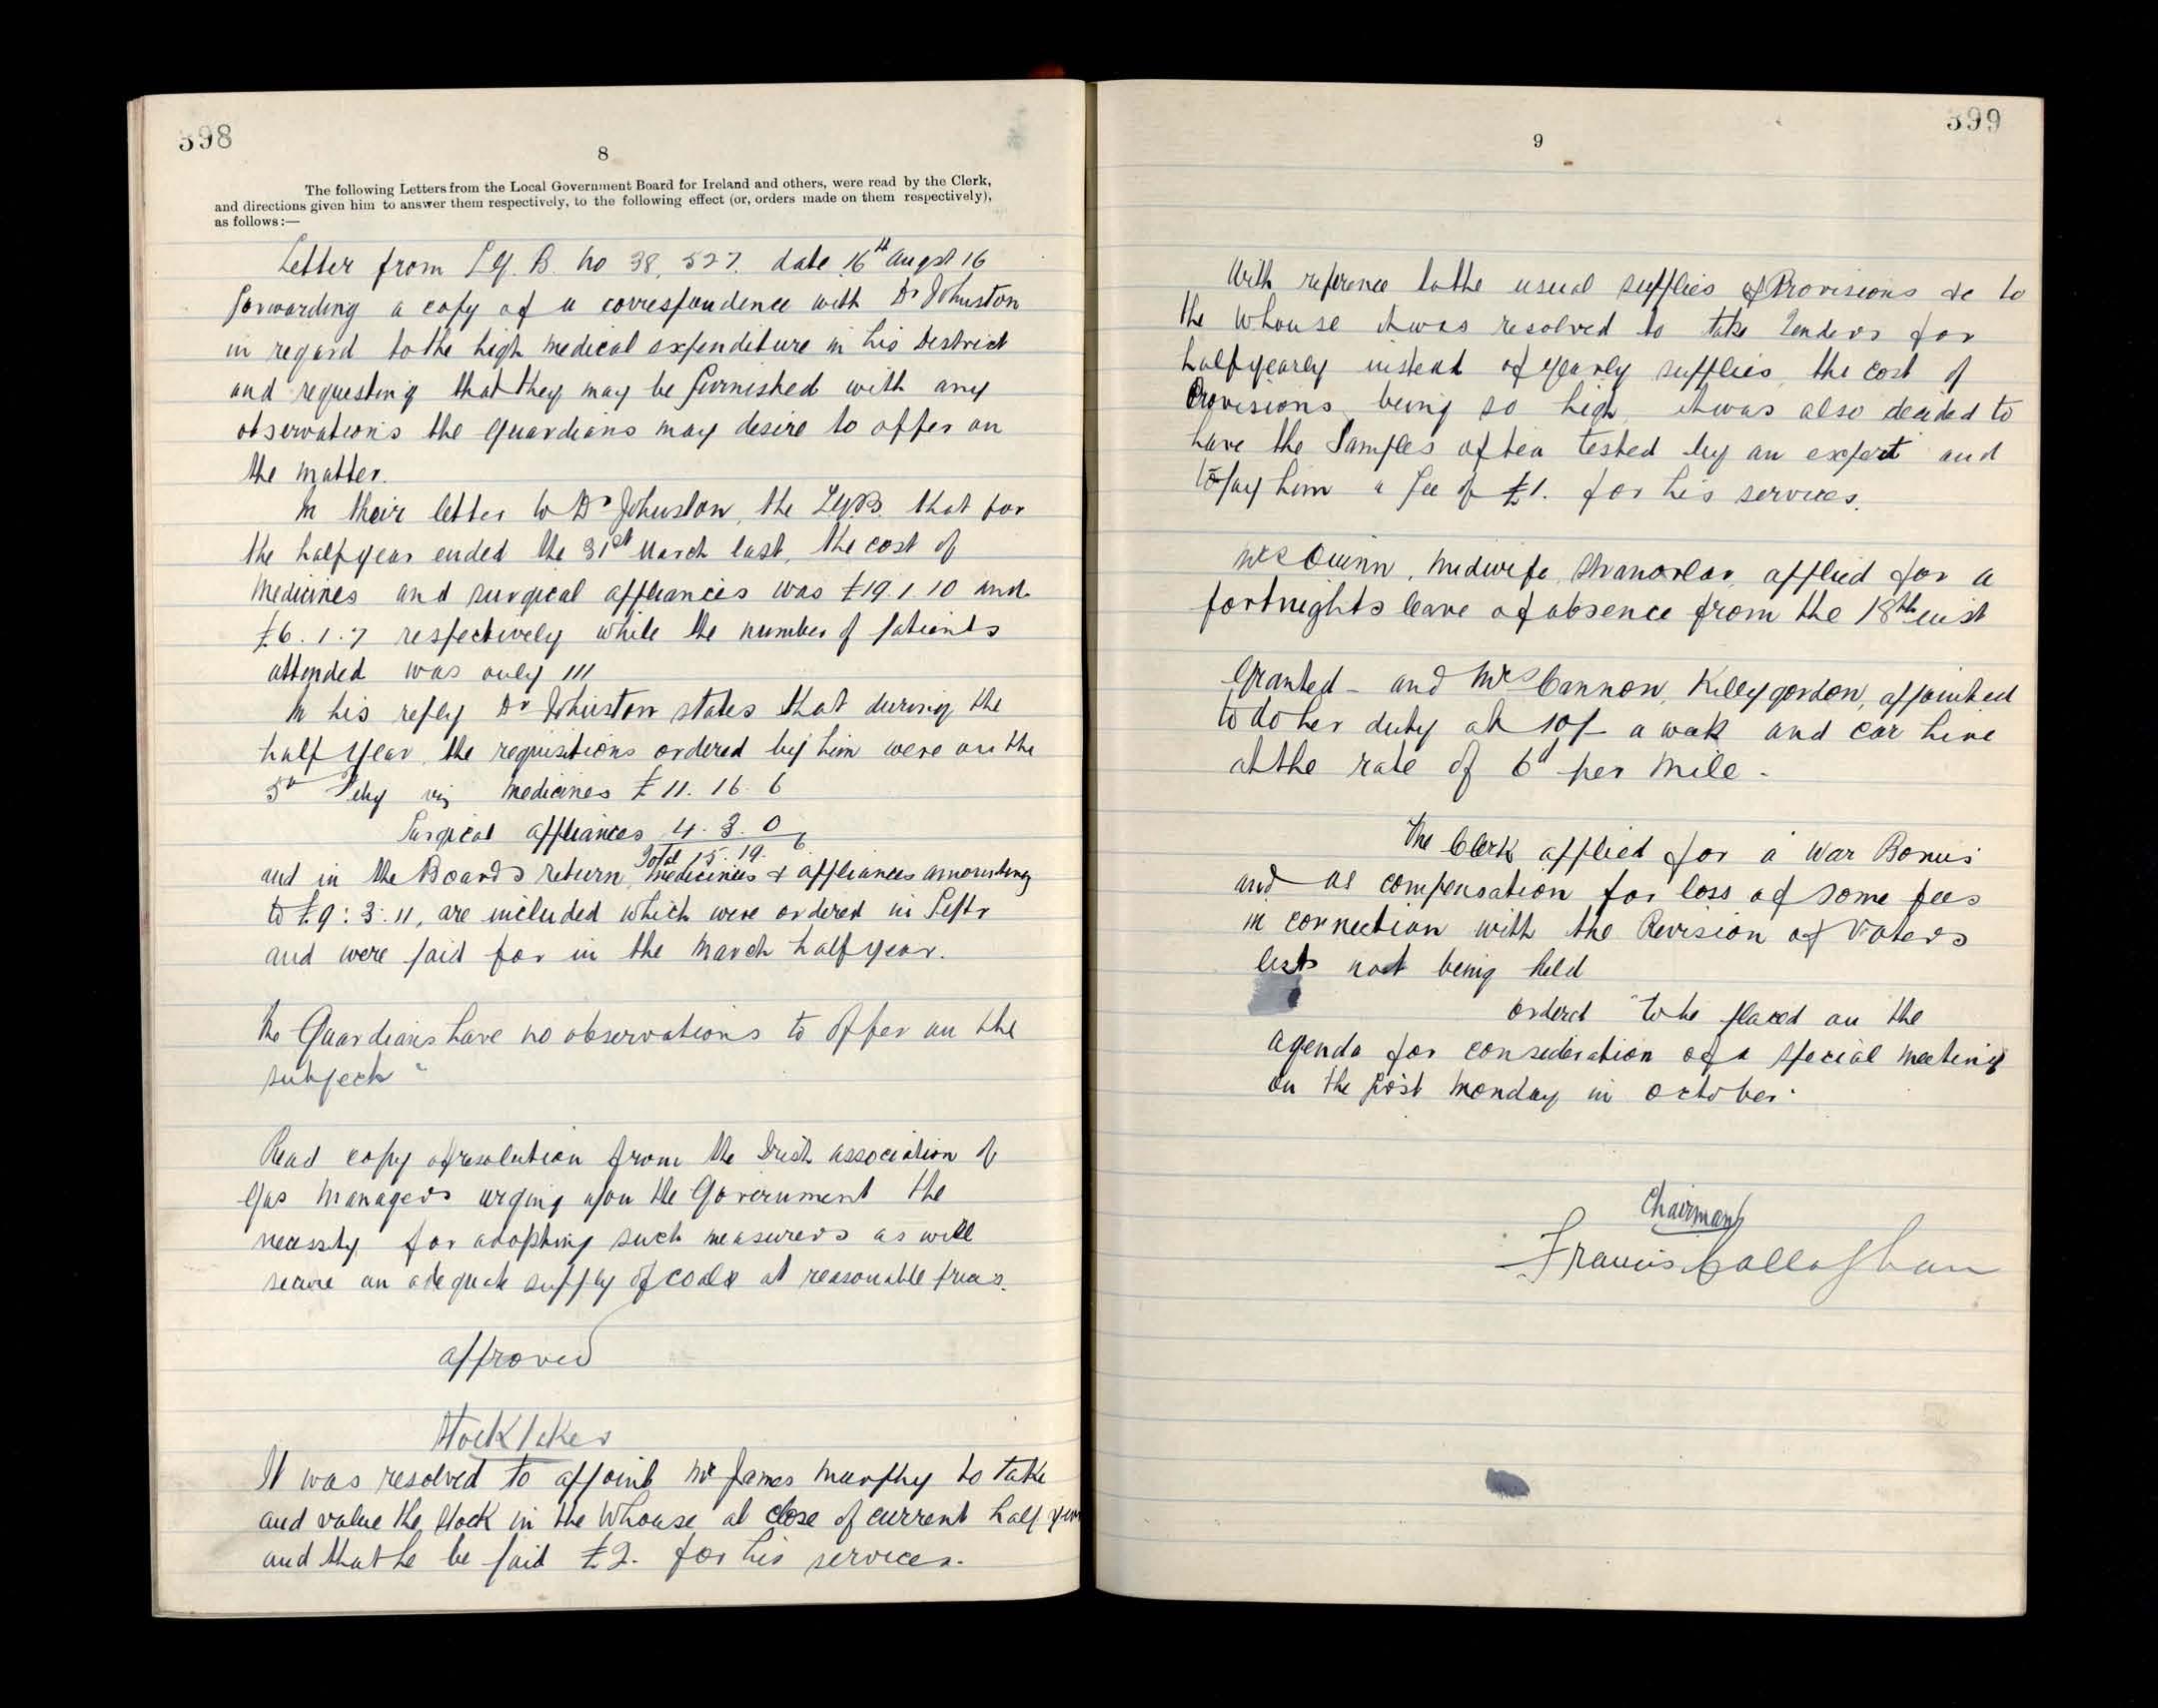 398
8
The following Letters from the Local Government Board for Ireland and others, were read by the Clerk,
and directions given him to answer them respectively, to the following effect (or, orders made on them respectively),
as follows:—
Letter from L.G.B. No 38,527. date 16th Augst 16
forwarding a copy of a correspondence with Dr Johnston
in regard to the high medical expenditure in his District
and requesting that they may be furnished with any
observations the Guardians may desire to offer on
the matter.
In their letter to Dr Johnston, the L.G.B. that for
the half year ended the 31st March last, the cost of
Medicines and surgical appliances was £19.1.10 and
£6.1.7 respectively while the number of patients
attended was only 111
In his reply Dr Johnston states that during the
half year the requisitions ordered by him were on the
5th viz medicines £11.16.6
Surgical appliances 4.3.0
Total 15.19.6
and in the Boards return, medicines & appliances amounting
to £9:3:11, are included which were ordered in Septr
and were paid for in the March half year.
The Guardians have no observations to offer on the
subject"
Read copy of resolution from the Irish association of
Gas Managers urging upon the Government the
necessty for adopting such measurers as will
secure an adequate supply of coals at reasonable prices.
approved
Stocktaker
It was resolved to appoint Mr James Murphy to take
and value the Stock in the Whouse at close of current half year
and that he be paid £2. for his services.
399
9
With reference to the usual supplies of Provisions &c to
the Whouse it was resolved to take Tenders for
half yearly instead of yearly supplies, the cost of
Provisions being so high, it was also decided to
have the Samples of tea tested by an expert and
to pay him a fee of £1. for his services.
Mrs Quinn, Midwife, Stranorlar, applied for a
fortnights leave of absence from the 18th inst
Granted - and Mrs Cannon, Killygordon, appointed
to do her duty at 10/- a week and car hire
at the rate of 6d per mile -
The Clerk applied for a War Bonus
and as compensation for loss of some fees
in connection with the Revision of Voters
lists not being held
ordered "to be placed on the
agenda for consideration of a special meeting
on the first Monday in October.
Chairman
Francis Callaghan